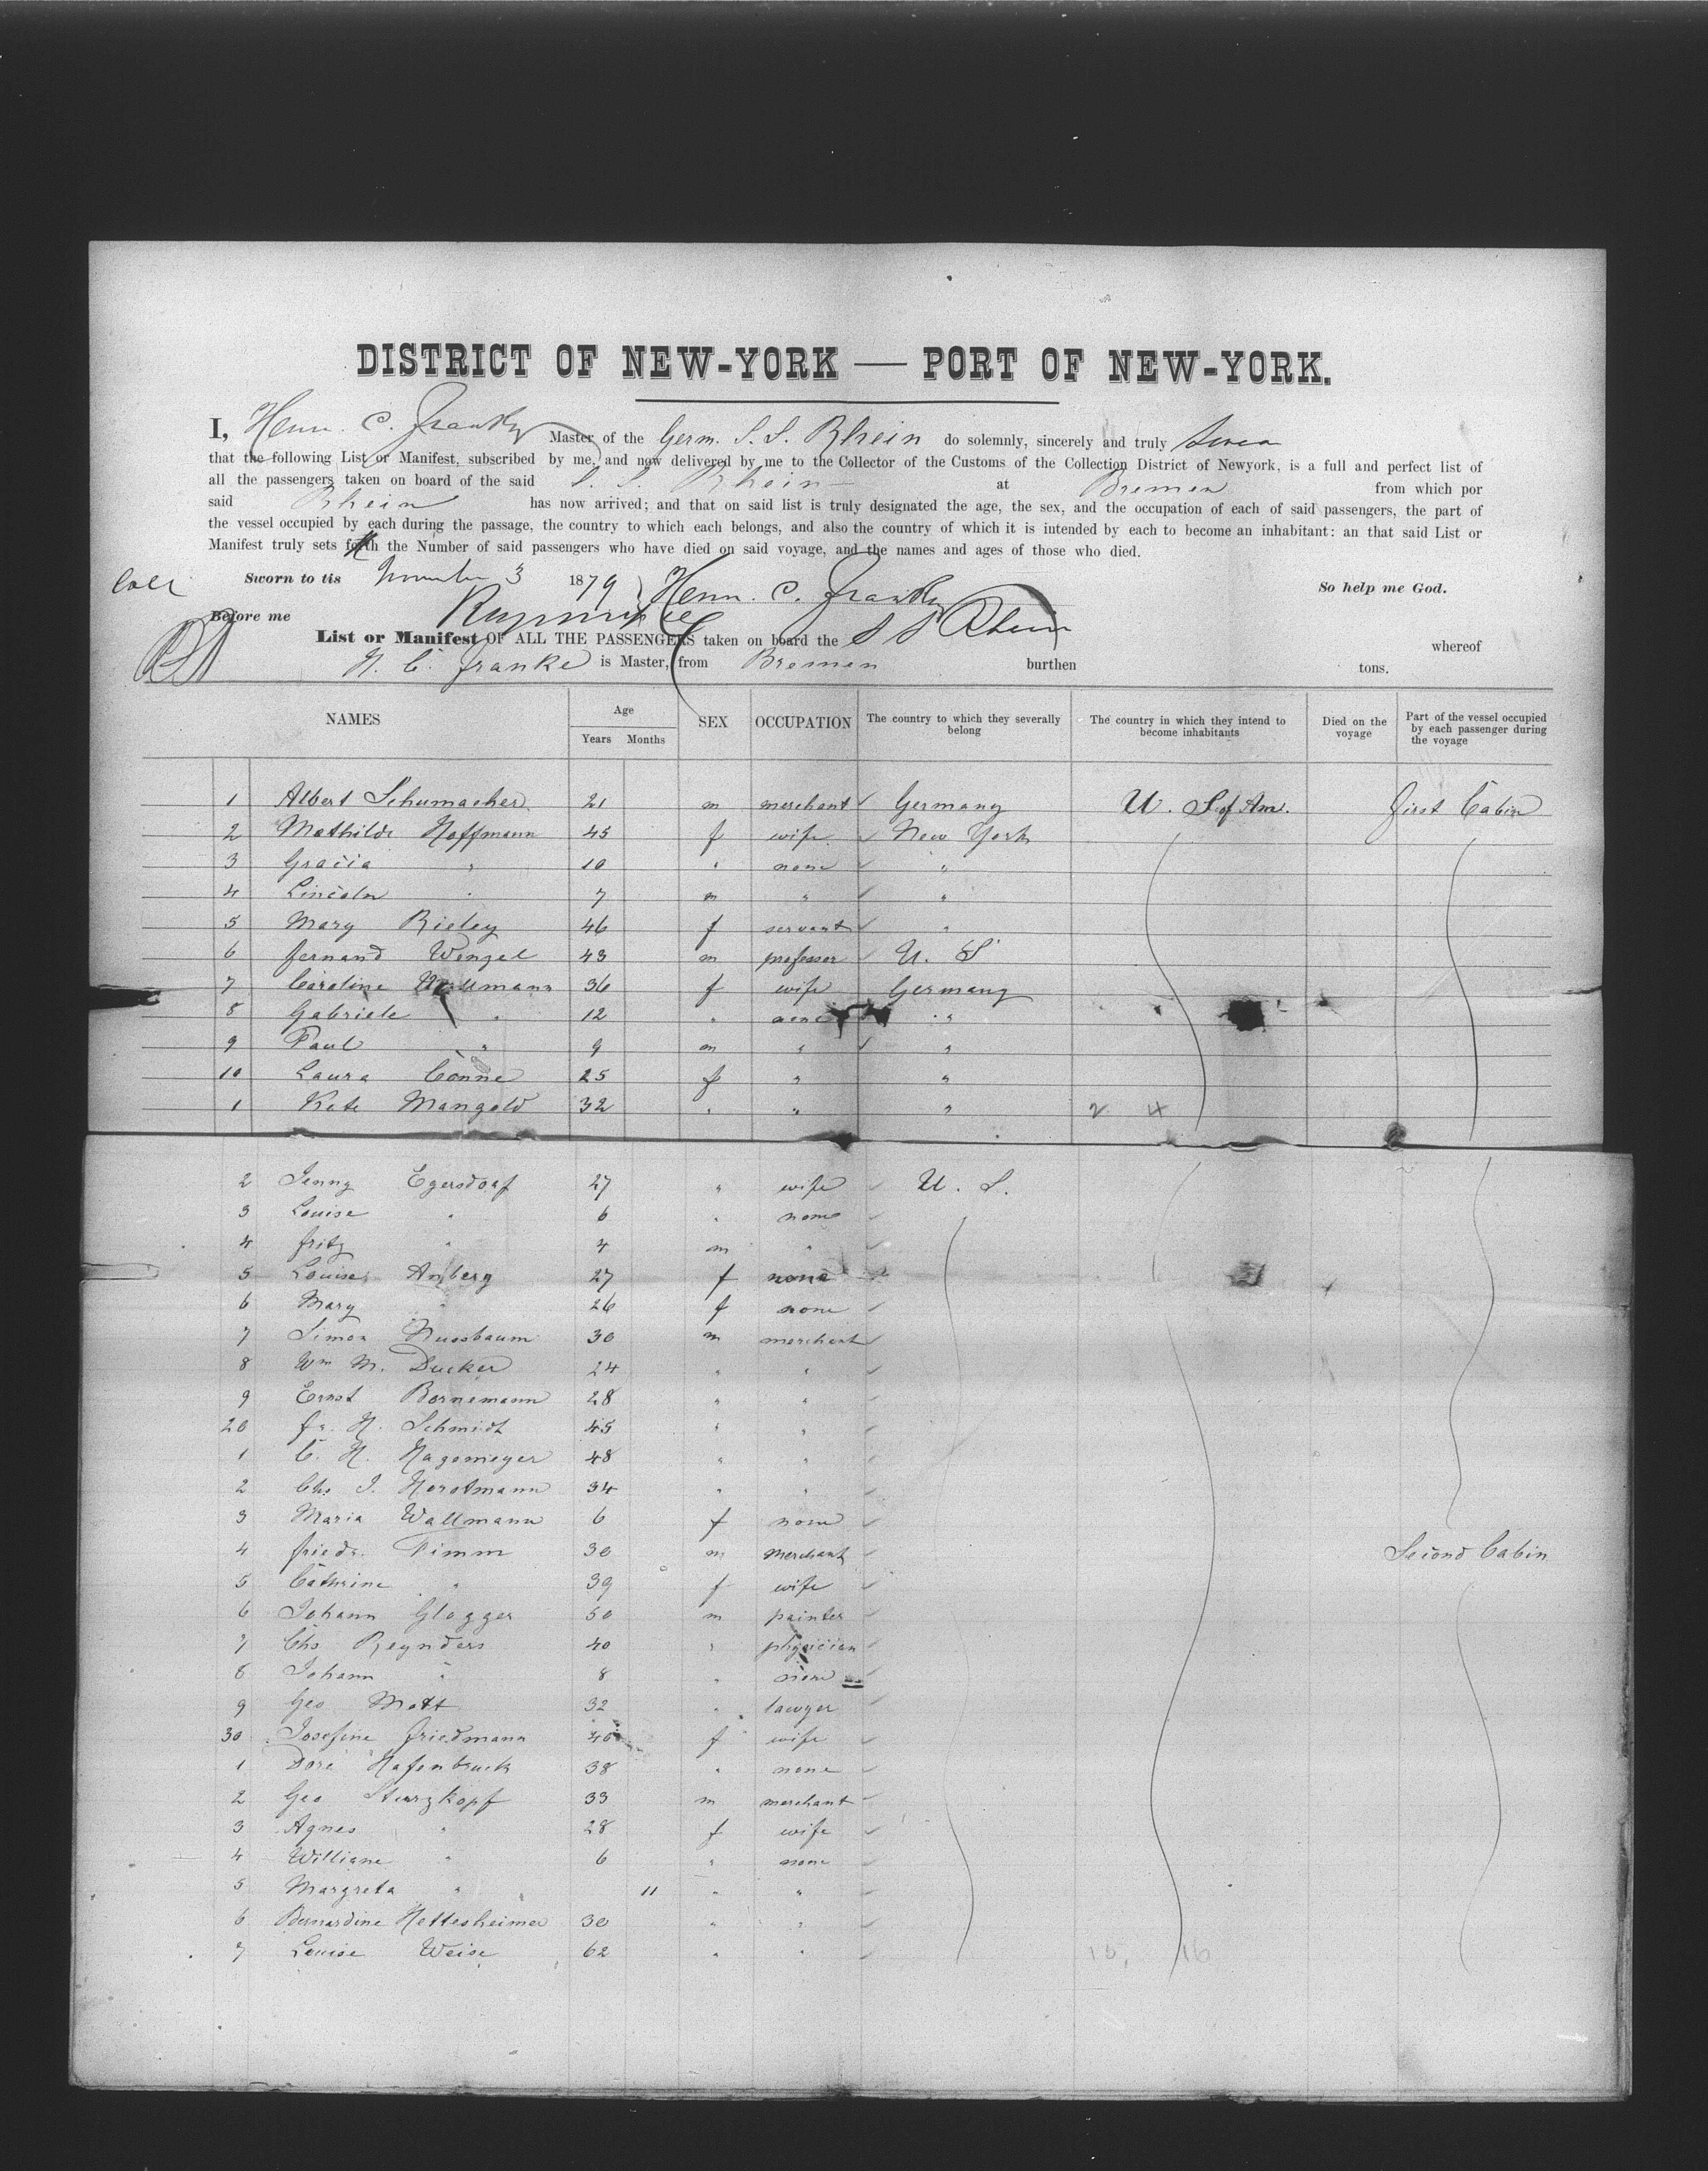 DISTRICT OF NEW-YORK — PORT OF NEW-YORK.
I, Henn. C. Franke Master of the Germ. S. S. Rhein do solemnly, sincerely and truly Swear
that the following List or Manifest, subscribed by me, and now delivered by me to the Collector of the Customs of the Collection District of Newyork, is a full and perfect list of
all the passengers taken on board of the said S. S. Rhein at Bremen from which por
said Rhein has now arrived; and that on said list is truly designated the age, the sex, and the occupation of each of said passengers, the part of
the vessel occupied by each during the passage, the country to which each belongs, and also the country of which it is intended by each to become an inhabitant: an that said List or
Manifest truly sets forth the Number of said passengers who have died on said voyage, and the names and ages of those who died.
Sworn to tis November 3 1879 Henn. C. Franke So help me God.
Before me
List or Manifest OF ALL THE PASSENGERS taken on board the S S Rhein whereof
H. C. Franke is Master, from Bremen burthen tons.
NAMES Age Years Months SEX OCCUPATION The country to which they severally belong The country in which they intend to become inhabitants Died on the voyage Part of the vessel occupied by each passenger during the voyage
1 Albert Schumacher 21 m merchant Germany U. S of Am. First Cabin
2 Mathilde Hoffmann 45 f wife New York
3 Gracia " 10 " none "
4 Lincoln " 7 m " "
5 Mary Rieley 46 f servant "
6 Fernand Wenzel 43 m professor U. S
7 Caroline Wallmann 36 f wife Germany
8 Gabriele " 12 " none "
9 Paul " 9 m " "
10 Laura Conne 25 f " "
1 Kate Mangold 32 " " " 2 4
2 Jenny Egersdorf 27 " wife U. S.
3 Louise " 6 " none
4 Fritz " 4 m "
5 Louise Amberg 27 f none
6 Mary " 26 f none
7 Simon Nussbaum 30 m merchant
8 Wm M. Ducker 24 " "
9 Ernst Bornemann 28 " "
20 Fr. H. Schmidt 45 " "
1 C. H. Hagemeyer 48 " "
2 Chs J. Horstmann 34 " "
3 Maria Wallmann 6 f none
4 Friedr. Timm 30 m merchant Second Cabin
5 Cathrine " 39 f wife
6 Johann Glogger 50 m painter
7 Chs Reynders 40 " physician
8 Johann " 8 " none
9 Geo Mott 32 " lawyer
30 Josefine Friedmann 40 f wife
1 Dore Hafenbruck 38 " none
2 Geo Sturzkopf 33 m merchant
3 Agnes " 28 f wife
4 Williane " 6 " none
5 Margreta " 11 " "
6 Bernardine Hettesheimer 30 " "
7 Louise Weise 62 " " 10, 16